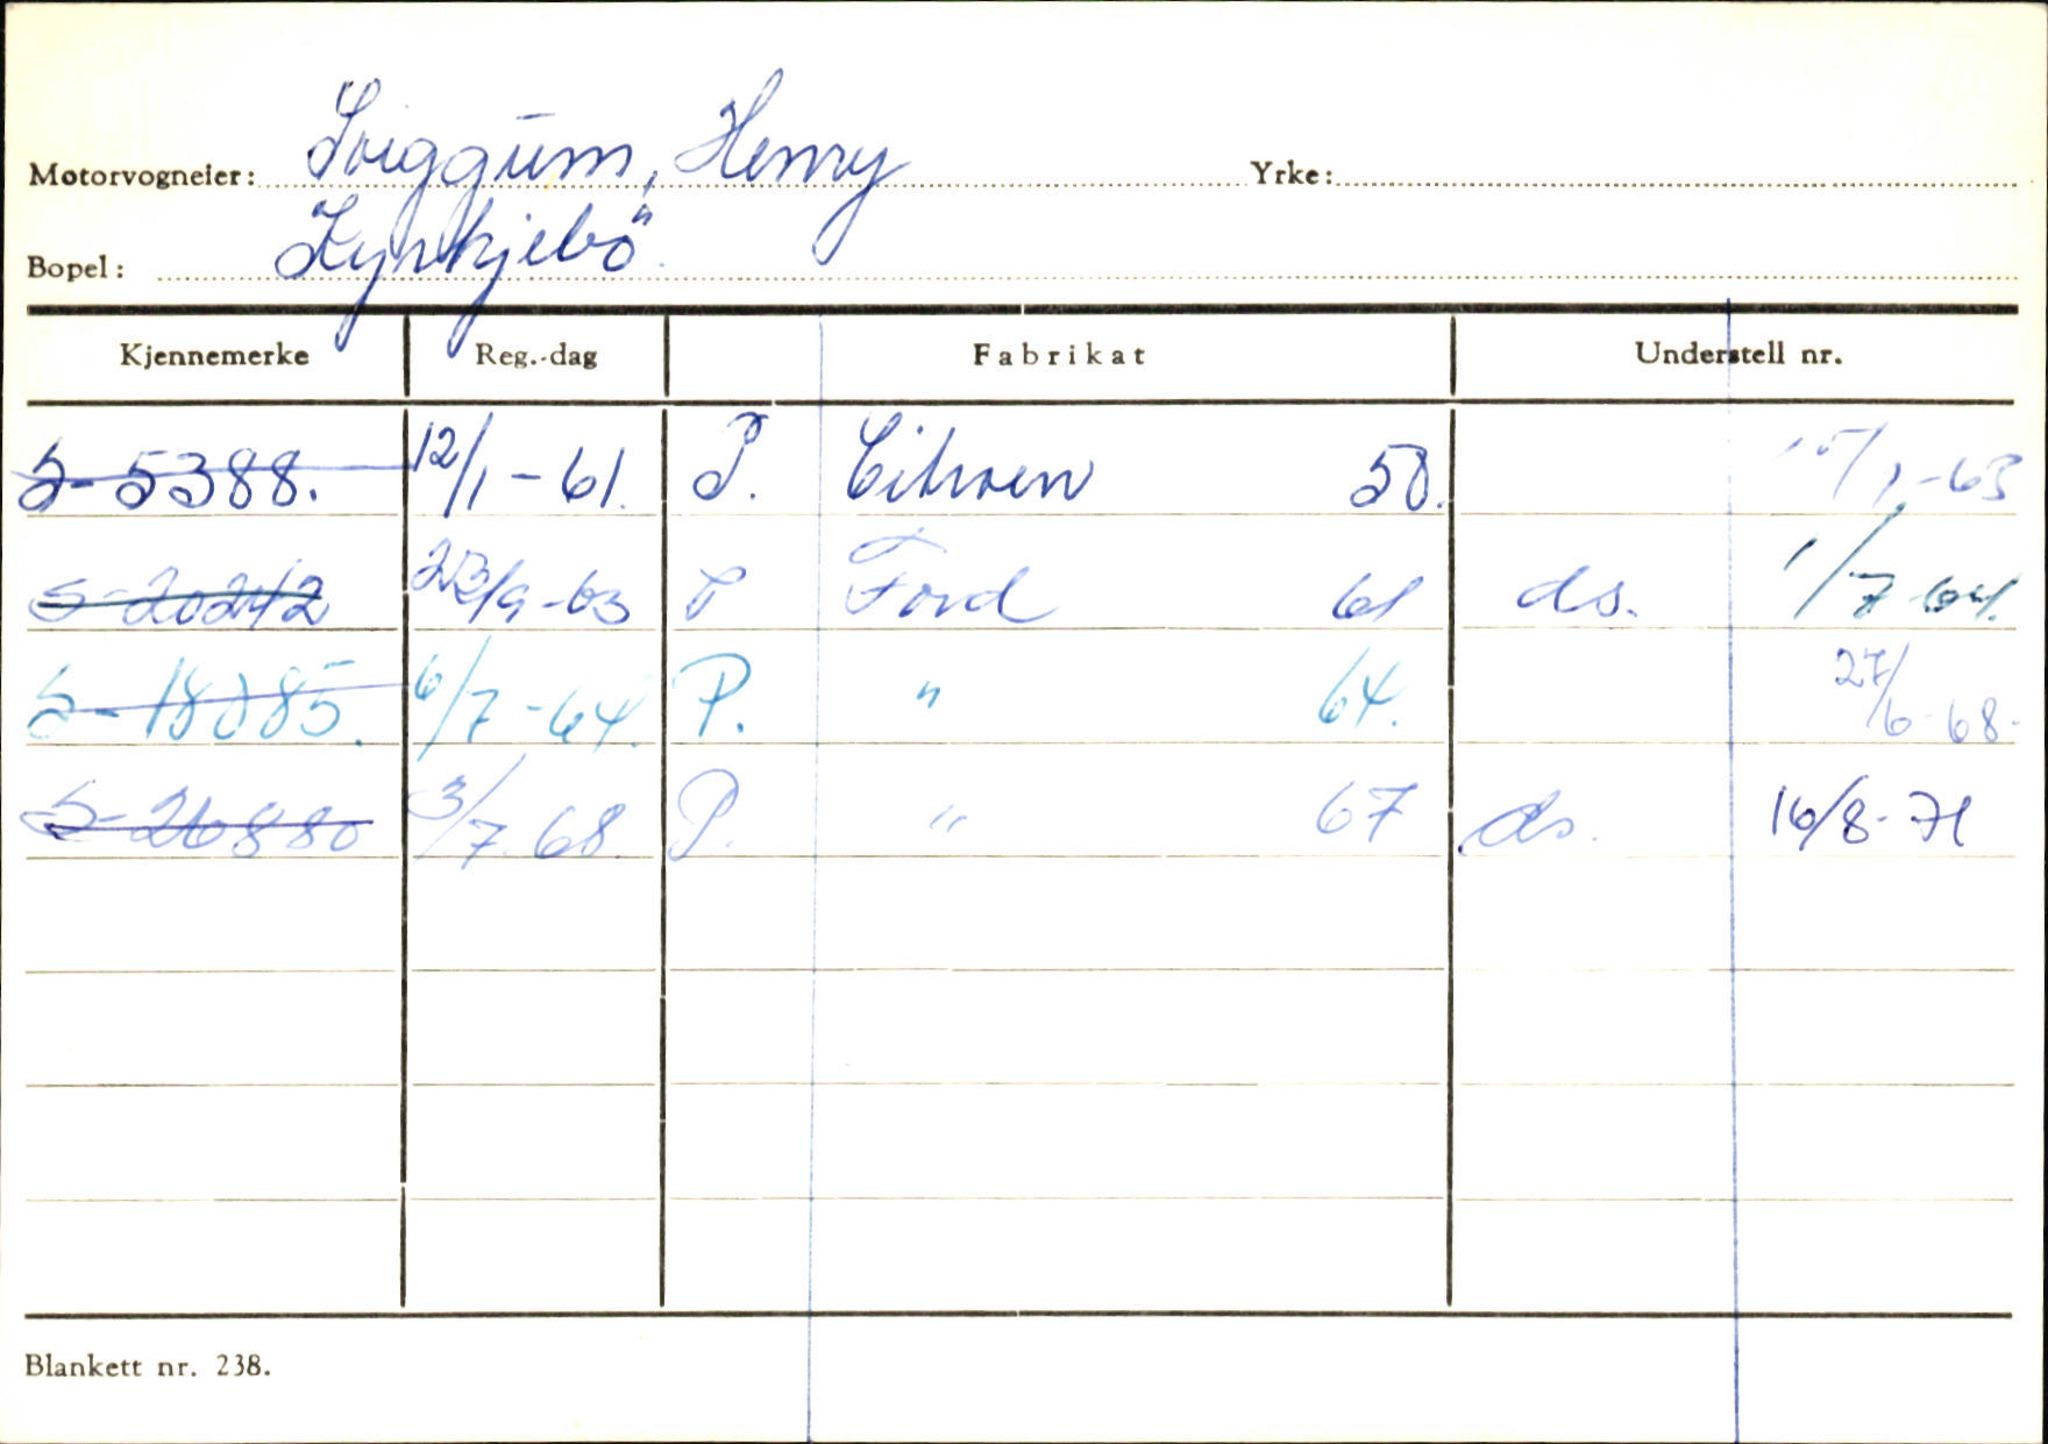 Motorvogneier: Sviggum, Henry Yrke:
Bopel: Kyrkjebö
Kjennemerke Reg.-dag Fabrikat Understell nr.
S-5388. 12/1-61. P. Citroen 58. 15/1-63
S-20242 23/9-63 P Ford 61 ds. 1/7-64.
S-18085. 6/7-64. P. " 64. 27/6-68-
S-26880 3/7.68. P. " 67 ds. 16/8-71
Blankett nr. 238.